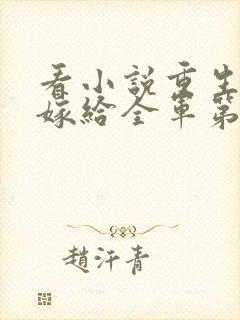 看小說重生
嫁給全軍第
趙汗青